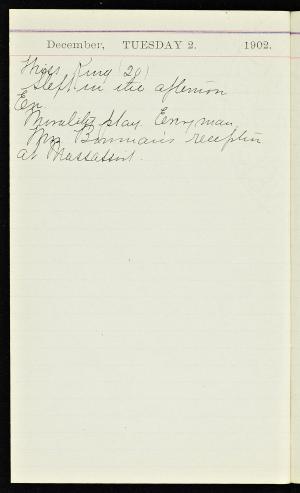 December, TUESDAY 2. 1902.
Miss King (20)
Slept in the afternoon
Ev.
Morality play Everyman
Mrs Bowman's reception
at Massasoit.